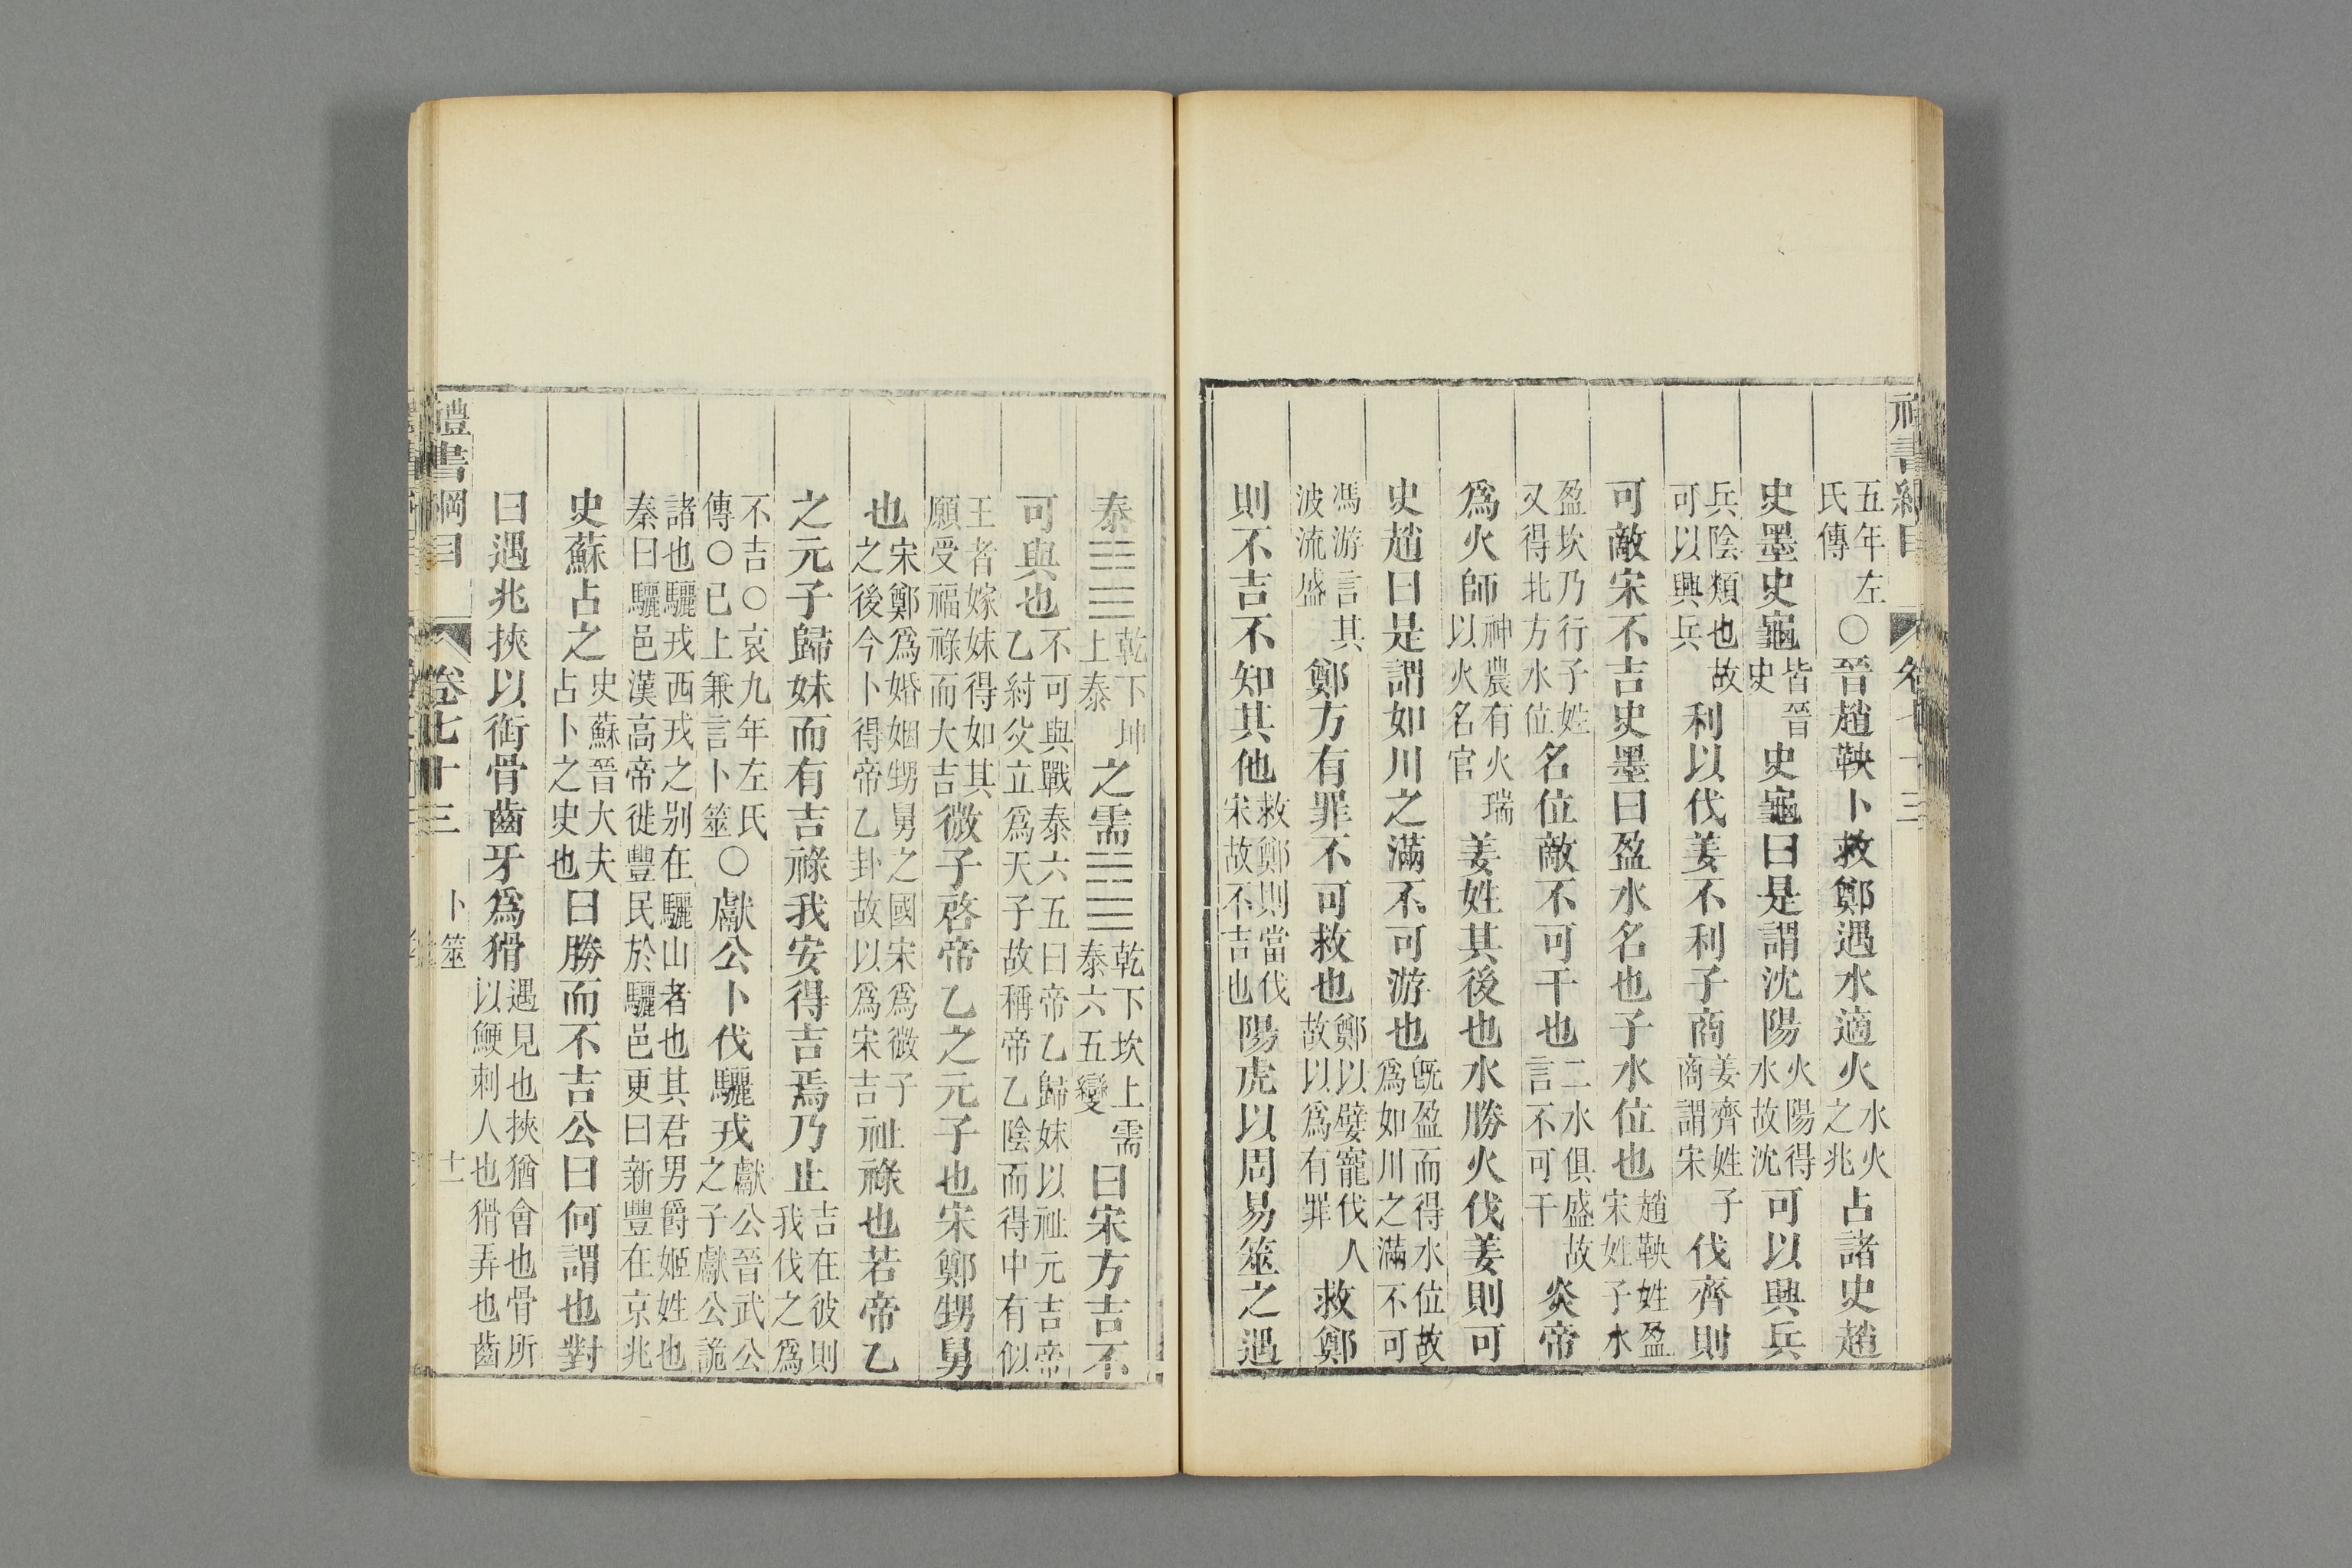 禮書綱目 卷七十三
五年左氏傳○晉趙鞅卜救鄭遇水適火水火之兆占諸史趙
史墨史龜皆晉史史龜曰是謂沈陽火陽得水故沈可以興兵
兵陰類也故可以興兵利以伐姜不利子商姜齊姓子商謂宋伐齊則
可敵宋不吉史墨曰盈水名也子水位也趙鞅姓盈宋姓子水
盈坎乃行子姓又得北方水位名位敵不可干也二水俱盛故言不可干炎帝
爲火師神農有火瑞以火名官姜姓其後也水勝火伐姜則可
史趙曰是謂如川之滿不可游也旣盈而得水位故爲如川之滿不可
馮游言其波流盛鄭方有罪不可救也鄭以嬖寵伐人故以爲有罪救鄭
則不吉不知其他救鄭則當伐宋故不吉也陽虎以周易筮之遇
泰䷊乾下坤上泰之需䷄乾下坎上需泰六五變曰宋方吉不
可與也不可與戰泰六五曰帝乙歸妹以祉元吉帝乙紂父立爲天子故稱帝乙陰而得中有似
王者嫁妹得如其願受福祿而大吉微子啓帝乙之元子也宋鄭甥舅
也宋鄭爲婚姻甥舅之國宋爲微子之後今卜得帝乙卦故以爲宋吉祉祿也若帝乙
之元子歸妹而有吉祿我安得吉焉乃止吉在彼則我伐之爲
不吉○哀九年左氏傳○已上兼言卜筮○獻公卜伐驪戎獻公晉武公之子獻公詭
諸也驪戎西戎之别在驪山者也其君男爵姬姓也秦曰驪邑漢高帝徙豐民於驪邑更曰新豐在京兆
史蘇占之史蘇晉大夫占卜之史也曰勝而不吉公曰何謂也對
曰遇兆挾以銜骨齒牙爲猾遇見也挾猶會也骨所以鯁刺人也猾弄也齒
禮書綱目 卷七十三 卜筮 十一